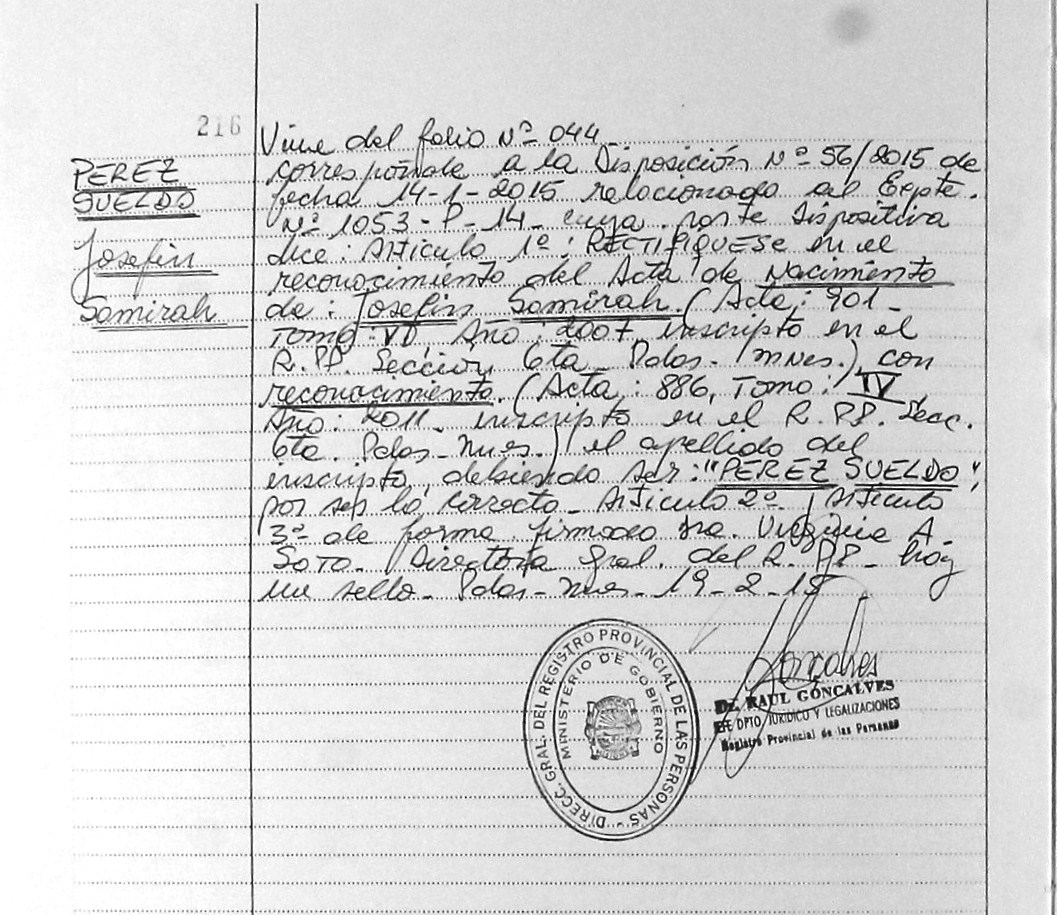 216
Viene del folio Nº 044
PEREZ
SUELDO
Josefin
Samirah
corresponde a la Disposición Nº 56/2015 de
fecha 14-1-2015 relacionado al Expte.
Nº 1053-P-14- cuya parte dispositiva
dice: Articulo 1º: RECTIFIQUESE en el
reconocimiento del Acta de Nacimiento
de: Josefin Samirah. (Acta: 901-
Tomo: VI, Año: 2007, inscripto en el
R.PP. Sección 6ta Pdas. Mnes.), con
reconocimiento. (Acta: 886, Tomo: IV
Año: 2011- inscripto en el R.PP. Secc.
6ta. Pdas- Mnes.) el apellido del
inscripto, debiendo ser: "PEREZ SUELDO",
por ser lo correcto- Articulo 2º, Articulo
3º de forma firmado Dra. Virginia A.
Soto- Directora Gral. del R.PP- hay
un sello- Pdas- Mnes- 19-2-15
DIRECC. GRAL. DEL REGISTRO PROVINCIAL DE LAS PERSONAS
MINISTERIO DE GOBIERNO
Dr. RAUL GONCALVES
JEFE DPTO. JURIDICO Y LEGALIZACIONES
Registro Provincial de las Personas